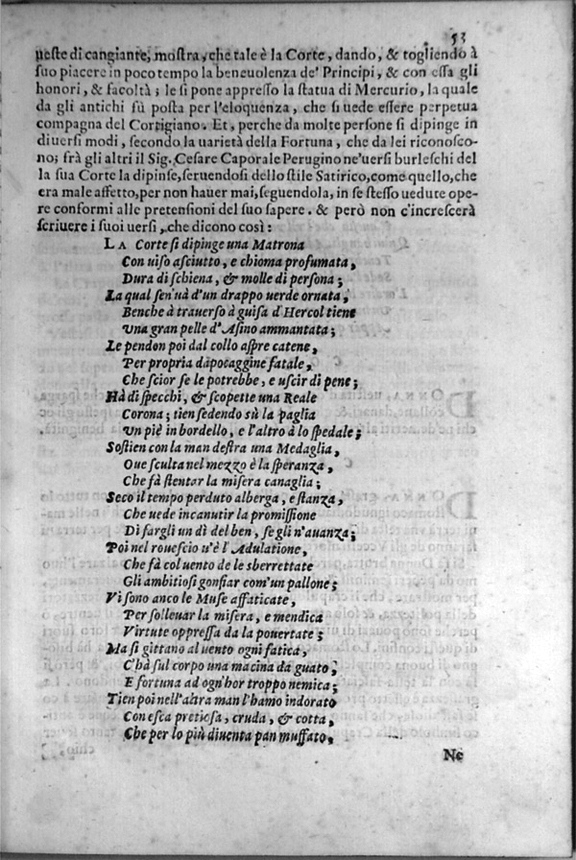 53
ueste di cangiante, mostra, che tale è la Corte, dando, & togliendo à
suo piacere in poco tempo la beneuolenza de' Principi, & con essa gli
honori, & facoltà; le si pone appresso la statua di Mercurio, la quale
da gli antichi fù posta per l'eloquenza, che si uede essere perpetua
compagna del Cortigiano. Et, perche da molte persone si dipinge in
diuersi modi, secondo la uarietà della Fortuna, che da lei riconosco-
no; frà gli altri il Sig. Cesare Caporale Perugino ne'uersi burleschi del
la sua Corte la dipinse, seruendosi dello stile Satirico, come quello, che
era male affetto, per non hauer mai, seguendola, in se stesso uedute ope-
re conformi alle pretensioni del suo sapere. & però non c'increscerà
scriuere i suoi uersi, che dicono così:
LA Corte si dipinge una Matrona
Con uiso asciutto, e chioma profumata,
Dura di schiena, & molle di persona;
La qual sen'uà d'un drappo uerde ornata,
Benche à trauerso à guisa d'Hercol tiene
Vna gran pelle d'Asino ammantata;
Le pendon poi dal collo aspre catene,
Per propria dapocaggine fatale,
Che scior se le potrebbe, e uscir di pene;
Hà di specchi, & scopette una Reale
Corona; tien sedendo sù la paglia
Vn piè in bordello, e l'altro à lo spedale;
Sostien con la man destra una Medaglia,
Oue sculta nel mezzo è la speranza,
Che fà stentar la misera canaglia;
Seco il tempo perduto alberga, e stanza,
Che uede incanutir la promissione
Di fargli un dì del ben, se gli n'auanza;
Poi nel rouescio u'è l'Adulatione,
Che fà col uento de le sberrettate
Gli ambitiosi gonfiar com'un pallone;
Vi sono anco le Muse affaticate,
Per solleuar la misera, e mendica
Virtute oppressa da la pouertate;
Ma si gittano al uento ogni fatica,
C'hà sul corpo una macina da guato,
E fortuna ad ogn'hor troppo nemica;
Tien poi nell'altra man l'hamo indorato
Con esca pretiosa, cruda, & cotta,
Che per lo più diuenta pan muffato,
Ne